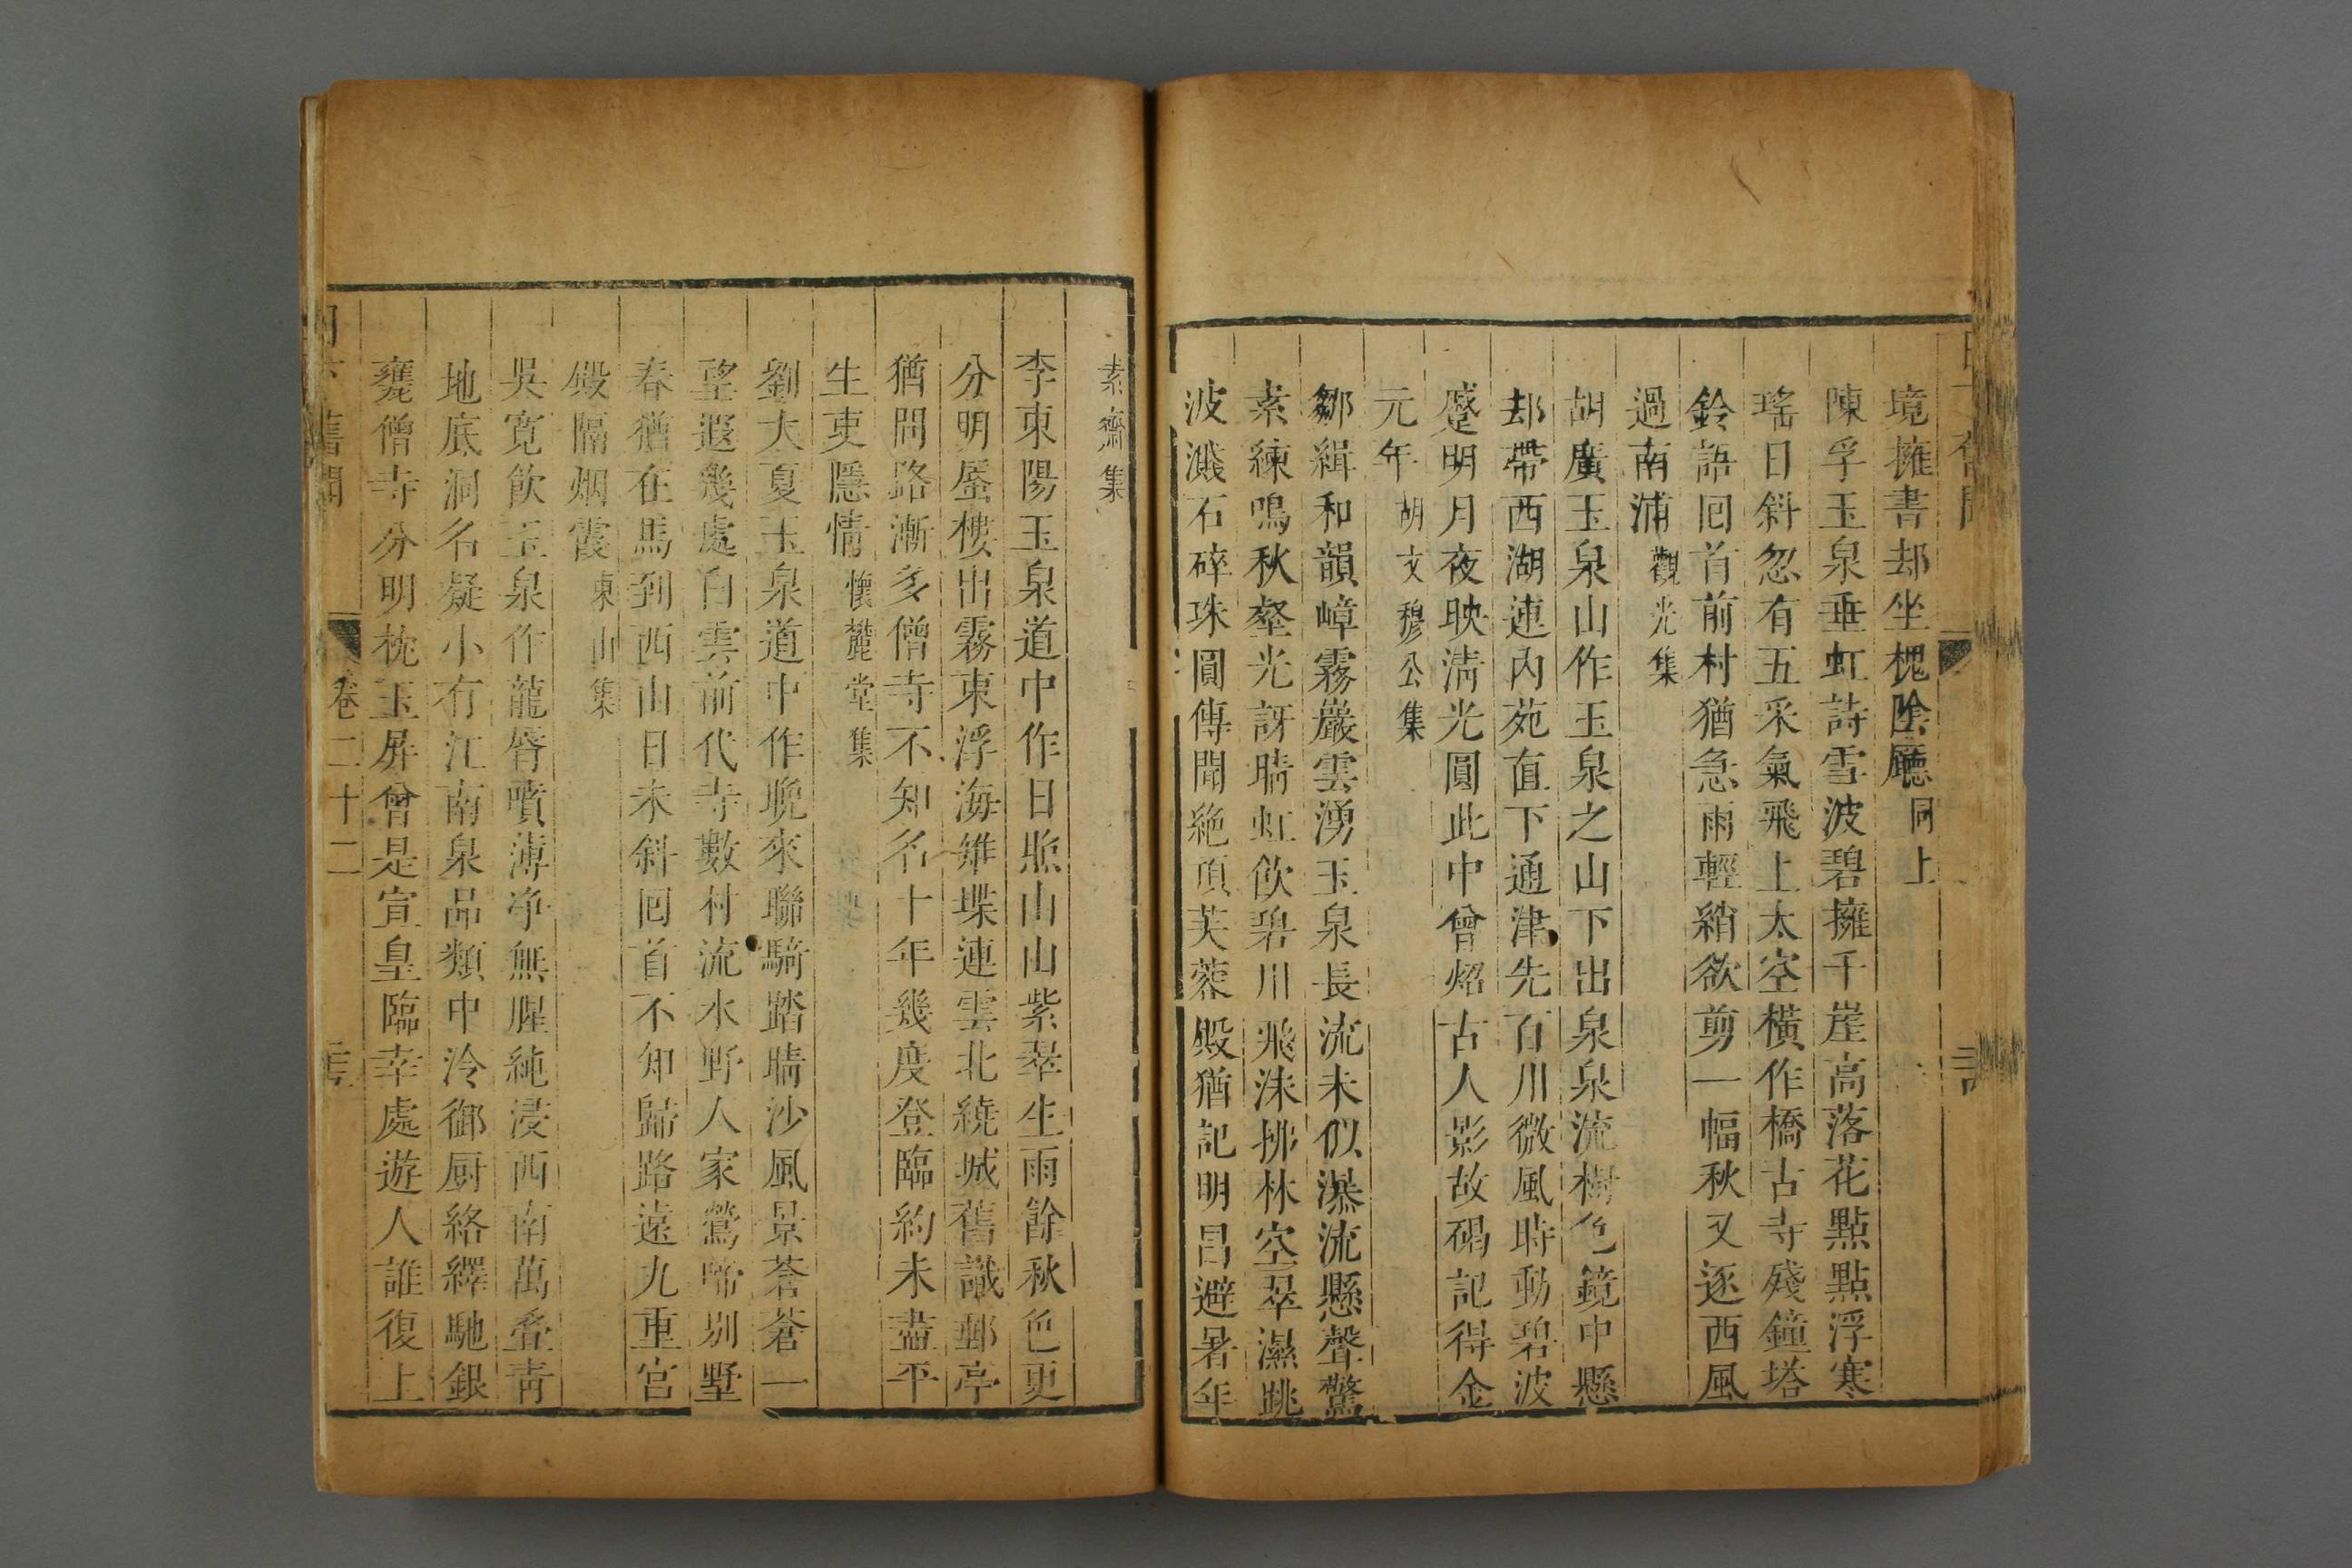 境擁書却坐槐陰廳同上
陳孚玉泉垂虹詩雪波碧擁千崖高落花點點浮寒
瑤日斜忽有五采氣飛上太空橫作橋古寺殘鐘塔
鈴語囘首前村猶急雨輕綃欲剪一幅秋又逐西風
過南浦觀光集
胡廣玉泉山作玉泉之山下出泉泉流樹色鏡中懸
却帶西湖連內苑直下通津先百川微風時動碧波
蹙明月夜映淸光圓此中曾炤古人影故碣記得金
元年胡文穆公集
鄒緝和韻嶂霧巖雲湧玉泉長流未似瀑流懸聲驚
素練鳴秋壑光訝晴虹飲碧川飛沫拂林空翠濕跳
波濺石碎珠圓傳聞絶頂芙蓉殿猶記明昌避暑年
素齋集
李東陽玉泉道中作日照山山紫翠生雨餘秋色更
分明蜃樓出霧東浮海雉堞連雲北繞城舊識郵亭
猶問路漸多僧寺不知名十年幾度登臨約未盡平
生吏隱情懷麓堂集
劉大夏玉泉道中作晚來聯騎踏晴沙風景蒼蒼一
望遐幾處白雲前代寺數村流水野人家鶯啼別墅
春猶在馬到西山日未斜囘首不知歸路遠九重宮
殿隔烟霞東山集
吳寬飲玉泉作龍脣噴薄净無腥純浸西南萬叠靑
地底洞名凝小有江南泉品類中泠御厨絡繹馳銀
甕僧寺分明枕玉屏曾是宣皇臨幸處遊人誰復上
舊聞 卷二十二